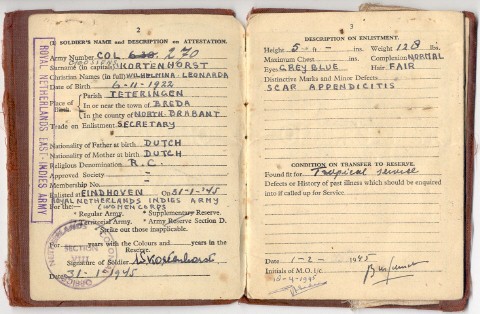 2
I. SOLDIER'S NAME and DESCRIPTION on ATTESTATION.
Army Number COL 638. 270
Surname (in capitals) KORTENHORST
Christian Names (in full) WILHELMINA LEONARDA
Date of Birth 6-11-1922
Place of Birth
Parish TETERINGEN
In or near the town of BREDA
In the county of NORTH-BRABANT
Trade on Enlistment SECRETARY
Nationality of Father at birth DUTCH
Nationality of Mother at birth DUTCH
Religious Denomination R.C.
Approved Society
Membership No.
Enlisted at EINDHOVEN On 31-1-'45
ROYAL NETHERLANDS INDIES ARMY
For the:- (WOMENCORPS
* Regular Army. * Supplementary Reserve.
* Territorial Army. * Army Reserve Section D.
Strike out those inapplicable.
For years with the Colours and years in the
Reserve.
Signature of Soldier W Kortenhorst
Date 31-1-1945
ROYAL NETHERLANDS EAST INDIES ARMY
SECTION
VIII
3
DESCRIPTION ON ENLISTMENT.
Height 5 ft. 4 ins. Weight 128 lbs.
Maximum Chest ins. Complexion NORMAL
Eyes GREY BLUE Hair FAIR
Distinctive Marks and Minor Defects
SCAR APPENDICITIS
CONDITION ON TRANSFER TO RESERVE.
Found fit for Tropical service
Defects or History of past illness which should be enquired
into if called up for Service
Date 1-2- 1945
Initials of M.O. i/c